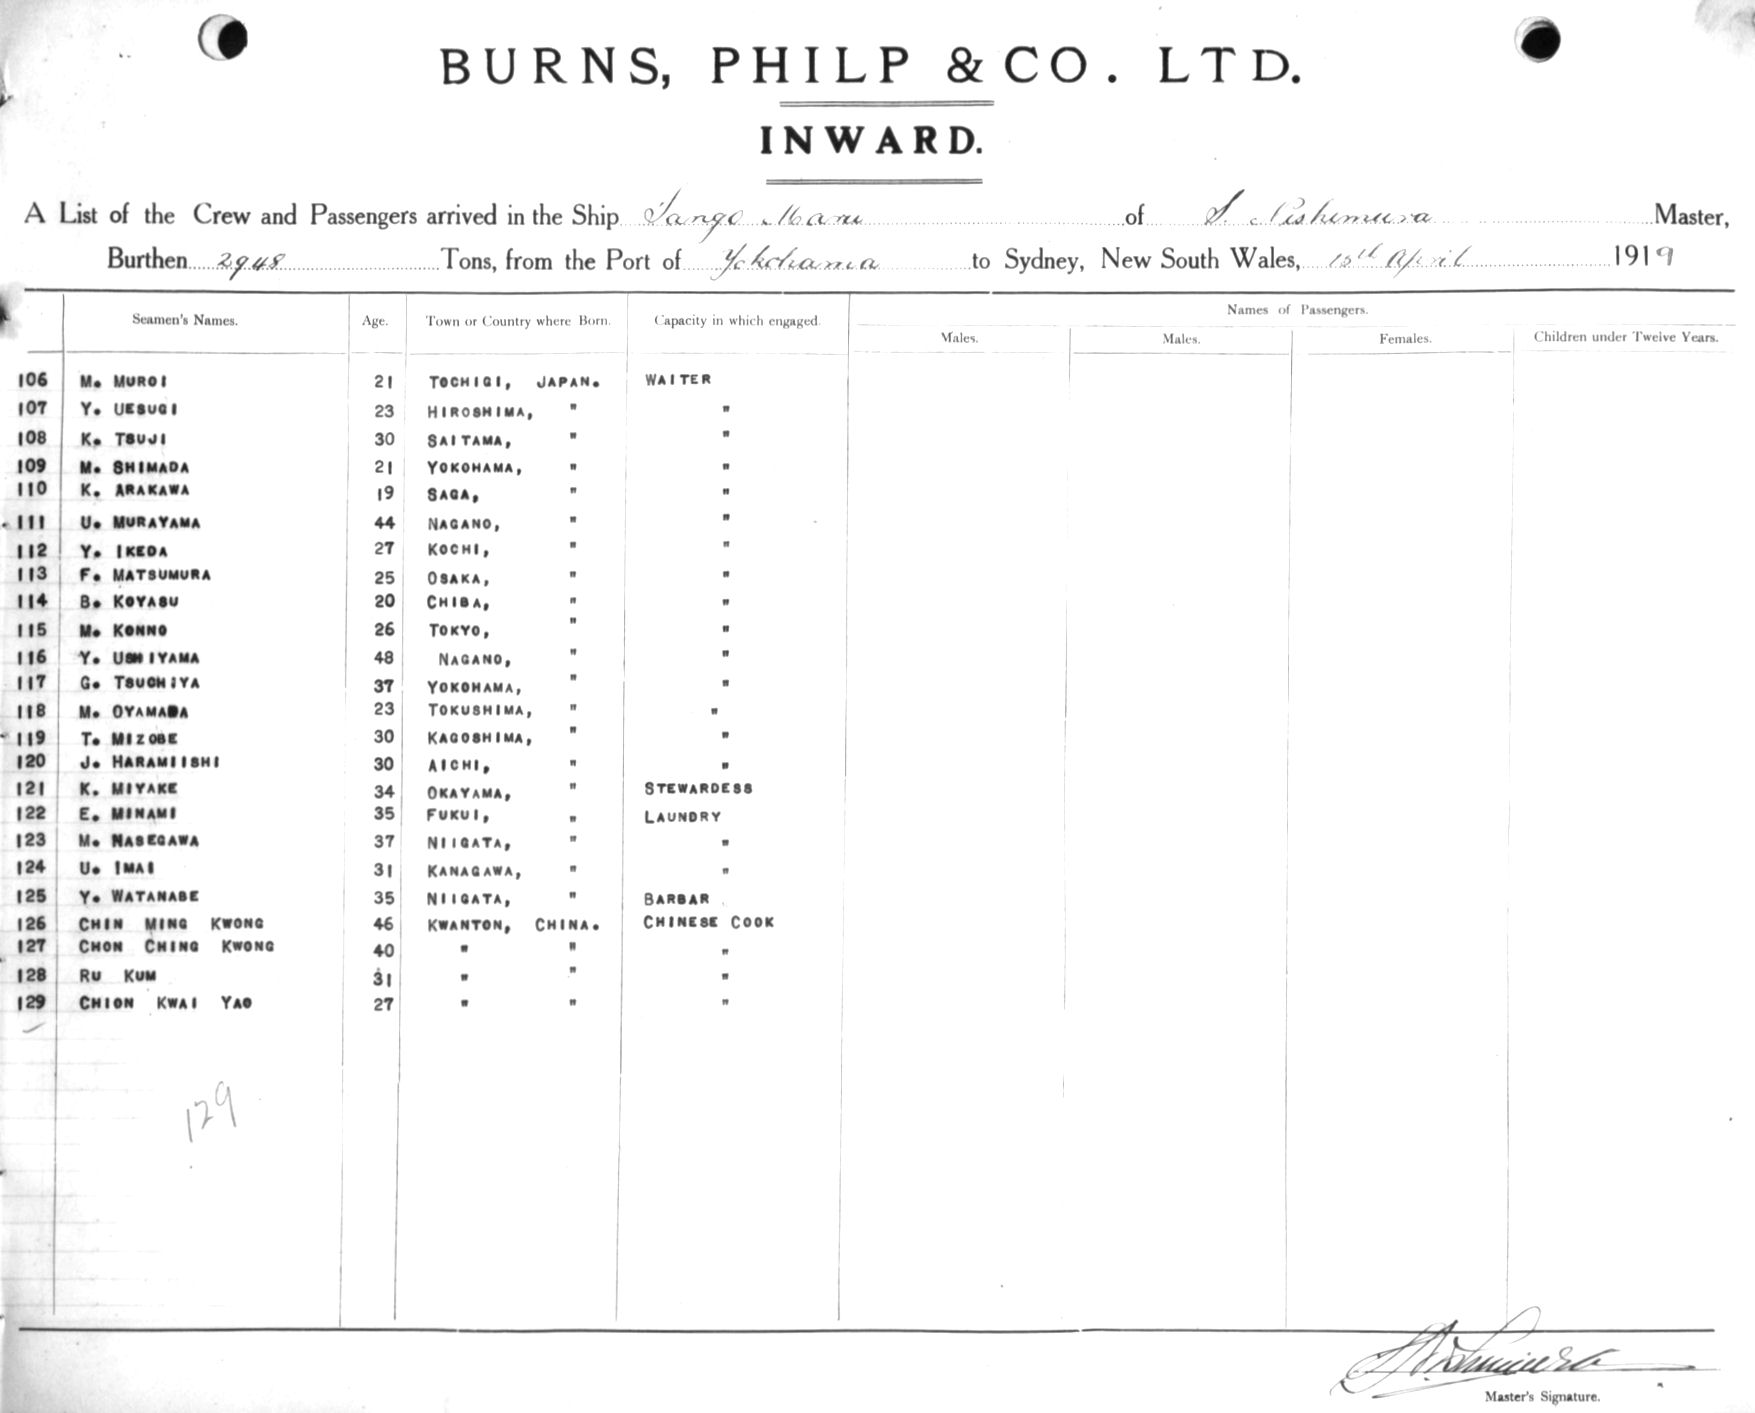 BURNS, PHILP & CO. LTD.
INWARD.
A List of the Crew and Passengers arrived in the Ship Tango Maru of S. Nishimura Master,
Burthen 2948 Tons, from the Port of Yokohama to Sydney, New South Wales, 15th April 1919
Seamen's Names. Age. Town or Country where Born. Capacity in which engaged. Names of Passengers.
Males. Males. Females. Children under Twelve Years.
106 M. MUROI 21 TOCHIGI, JAPAN. WAITER
107 Y. UESUGI 23 HIROSHIMA, " "
108 K. TSUJI 30 SAITAMA, " "
109 M. SHIMADA 21 YOKOHAMA, " "
110 K. ARAKAWA 19 SAGA, " "
111 U. MURAYAMA 44 NAGANO, " "
112 Y. IKEDA 27 KOCHI, " "
113 F. MATSUMURA 25 OSAKA, " "
114 B. KOYASU 20 CHIBA, " "
115 M. KONNO 26 TOKYO, " "
116 Y. USHIYAMA 48 NAGANO, " "
117 G. TSUCHIYA 37 YOKOHAMA, " "
118 M. OYAMADA 23 TOKUSHIMA, " "
119 T. MIZOBE 30 KAGOSHIMA, " "
120 J. HARAMIISHI 30 AICHI, " "
121 K. MIYAKE 34 OKAYAMA, " STEWARDESS
122 E. MINAMI 35 FUKUI, " LAUNDRY
123 M. NASEGAWA 37 NIIGATA, " "
124 U. IMAI 31 KANAGAWA, " "
125 Y. WATANABE 35 NIIGATA, " BARBAR
126 CHIN MING KWONG 46 KWANTON, CHINA. CHINESE COOK
127 CHON CHING KWONG 40 " " "
128 RU KUM 31 " " "
129 CHION KWAI YAO 27 " " "
129
Master's Signature.